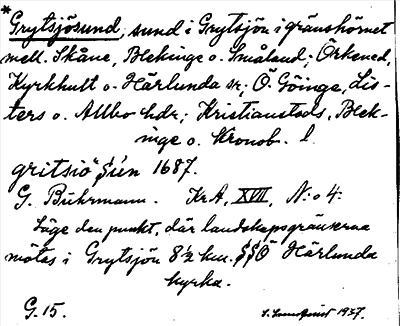 * Grytsjösund, sund i Grytsjön i gränshörnet
mell. Skåne, Blekinge o. Småland; Örkened,
Kyrkhult o. Härlunda sr; Ö. Göinge, Lis-
ters o. Allbo hdr; Kristianstads, Blek-
inge o. Kronob. l.
gritsiö sún 1687.
G. Buhrmann. KrA, XVII, N:o 4:
Läge den punkt, där landskapsgränserna
mötas i Grytsjön 8½ km. SSÖ Härlunda
kyrka.
G. 15. 1937.